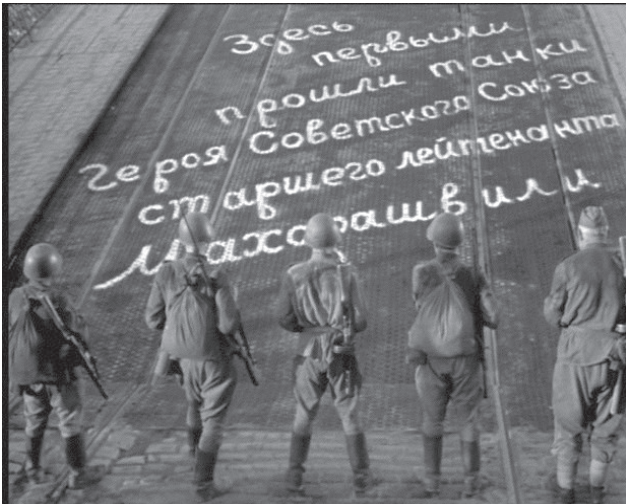 Здесь
первыми
прошли танки
Героя Советского Союза
старшего лейтенанта
Махарашвили